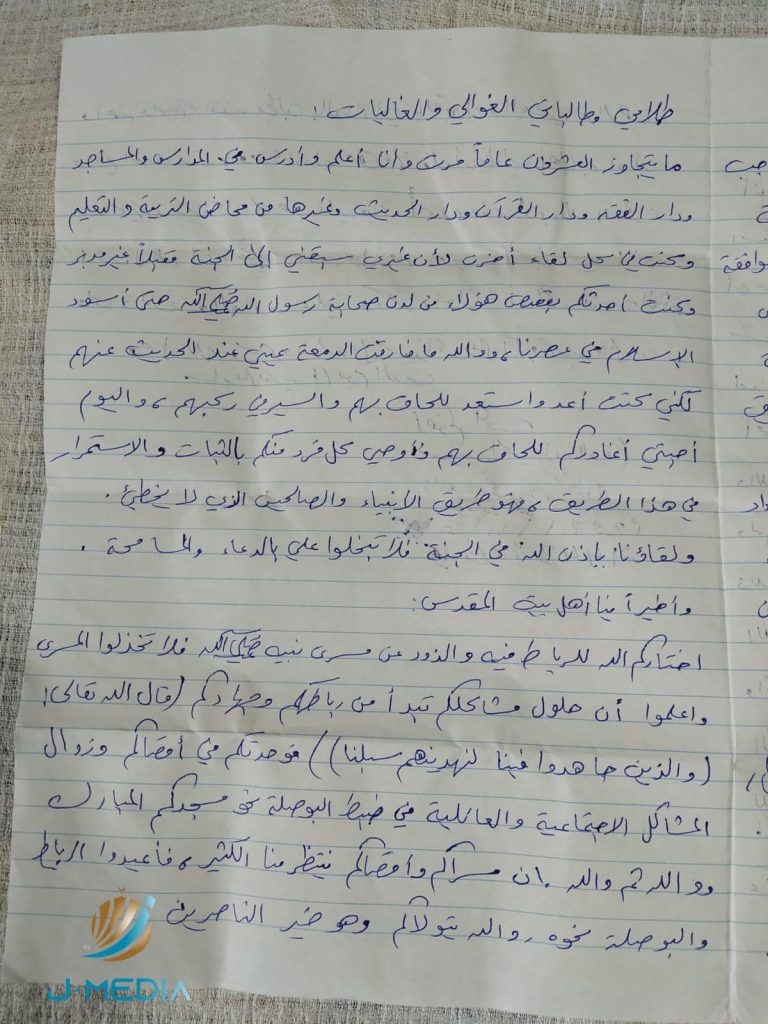 طلابي وطالباتي الغوالي والغاليات :
ما يتجاوز العشرون عاماً مرت وأنا أعلم وأدرس في المدارس والمساجد
ودار الفقه ودار القرآن ودار الحديث وغيرها من محاضن التربية والتعليم
وكنت في كل لقاء أحزن لأن غيري سبقني إلى الجنة مقبلاً غير مدبر
وكنت أحدثكم بقصص هؤلاء من لدن صحابة رسول الله ﷺ حتى أسود
الإسلام في عصرنا، ووالله ما فارقت الدمعة عيني عند الحديث عنهم
لكني كنت أعد واستعد للحاق بهم والسير في ركبهم، واليوم
أحبتي أغادركم للحاق بهم وأوصي كل فرد منكم بالثبات والاستمرار
في هذا الطريق، فهو طريق الأنبياء والصالحين الذي لا يخطئ.
ولقاؤنا بإذن الله في الجنة فلا تبخلوا علي بالدعاء والمسامحة .
وأخيراً يا أهل بيت المقدس:
اختاركم الله للرباط فيه والذود عن مسرى نبيه ﷺ فلا تخذلوا المسرى
واعلموا أن حلول مشاكلكم تبدأ من رباطكم وجهادكم (قال الله تعالى:
(والذين جاهدوا فينا لنهدينهم سبلنا)) فوحدتكم في أقصاكم وزوال
المشاكل الاجتماعية والعائلية في ضبط البوصلة نحو مسجدكم المبارك
ووالله ثم والله إن مسراكم وأقصاكم ينتظر منا الكثير، فأعيدوا الرباط
والبوصلة نحوه، والله يتولاكم وهو خير الناصرين
J-MEDIA